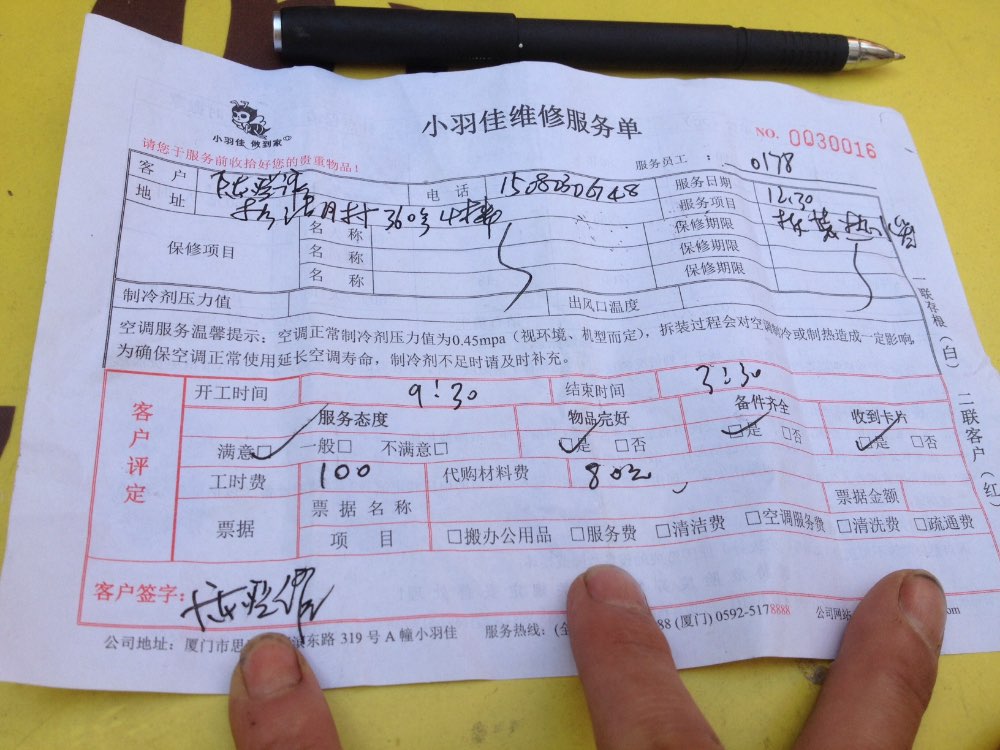 小羽佳 做到家
小羽佳维修服务单
NO. 0030016
请您于服务前收拾好您的贵重物品！
服务员工 ： 0178
客 户 电 话 服务日期 12.30
地 址 360号 服务项目
保修项目 名 称 保修期限
名 称 保修期限
名 称 保修期限
制冷剂压力值 出风口温度
空调服务温馨提示：空调正常制冷剂压力值为0.45mpa（视环境、机型而定），拆装过程会对空调制冷或制热造成一定影响，
为确保空调正常使用延长空调寿命，制冷剂不足时请及时补充。
客户评定
开工时间 9:30 结束时间 3:30
服务态度 物品完好 备件齐全 收到卡片
满意□ 一般□ 不满意□ □是 □否 □是 □否 □是 □否
工时费 100 代购材料费 80元
票据 票 据 名 称 票据金额
项 目 □搬办公用品 □服务费 □清洁费 □空调服务费 □清洗费 □疏通费
客户签字：
公司地址：厦门市思 东路 319 号 A 幢小羽佳 服务热线：(全 88 (厦门) 0592-5178888 公司网站 om
一联存根（白） 二联客户（红）